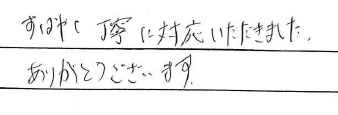 すばやく丁寧に対応いただきました.
ありがとうございます.